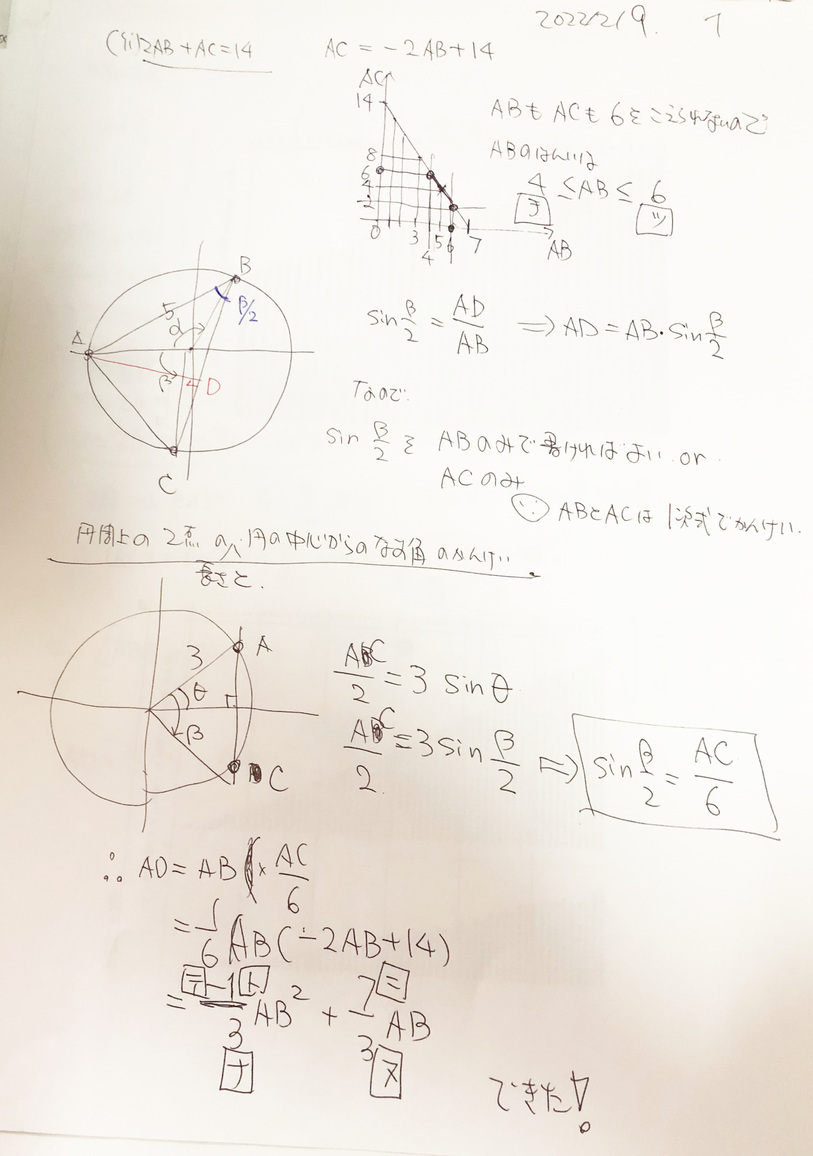 2022/2/9. 1
(ii)2AB + AC = 14 AC = -2AB + 14
AC
14
8
6
4
2
0 3 4 5 6 7
AB
ABもACも6をこえられないので
ABのはんいは
4 ≤ AB ≤ 6
テ ツ
B
A
5
α
β/2
β
D
C
sin β/2 = AD/AB ⇒ AD = AB・sin β/2
なので.
sin β/2 を ABのみで書ければよい or
ACのみ
∵ ABとACは1次式でかんけい.
円周上の2点の長さと、円の中心からのなす角のかんけい.
3
A
θ
β
C
AC/2 = 3 sin θ
AC/2 = 3 sin β/2 ⇒ sin β/2 = AC/6
∴ AD = AB × AC/6
= 1/6 AB(-2AB + 14)
= -1/3 AB² + 7/3 AB
テ ト ニ
ナ ヌ
できた!